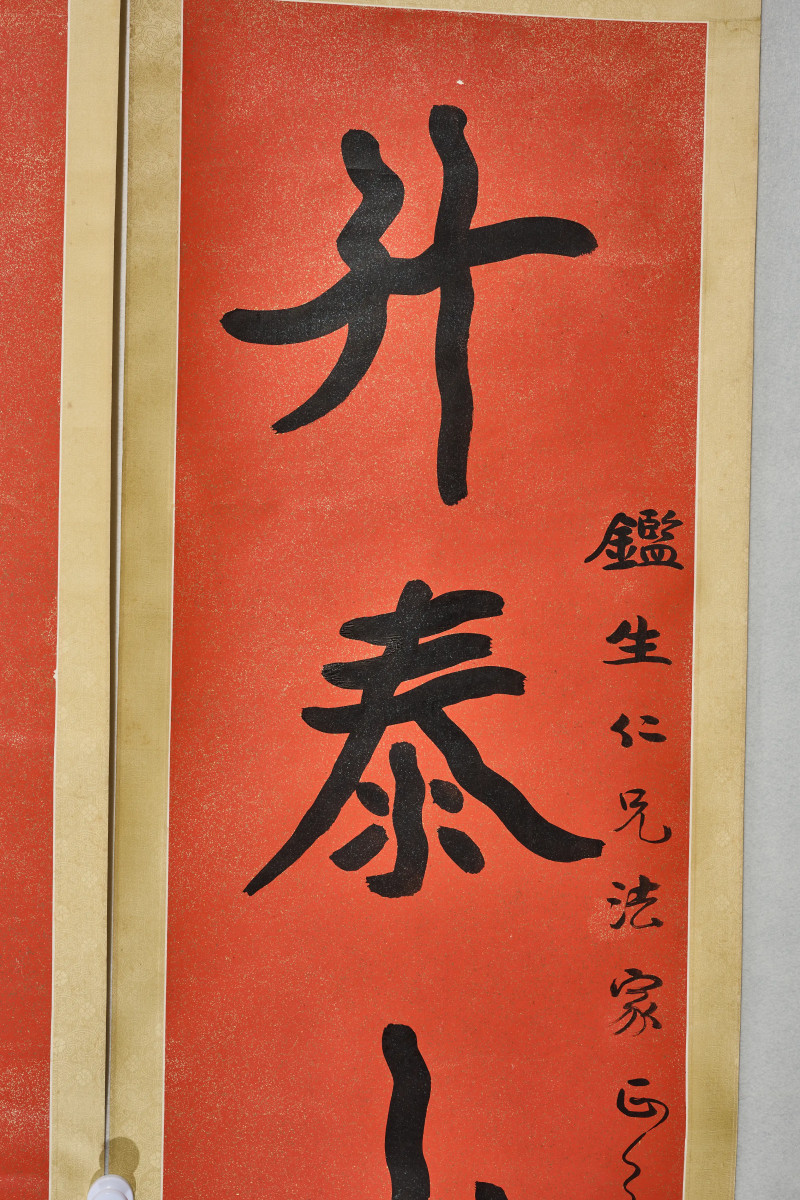 鑑生仁兄法家正之
升泰山